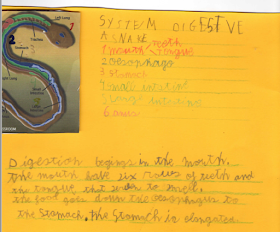 SYSTEM DIGESTVE
A SNAKE
1 mouth teeth
tongue
2 oesophago
3 stomach
4 small intestine
5 Large intestine
6 anus
Digestion begins in the mouth.
The mouth have six rows of teeth and
the tongue that order to smell.
the food goes down the oesophagus to
the stomach. the stomach is elongated